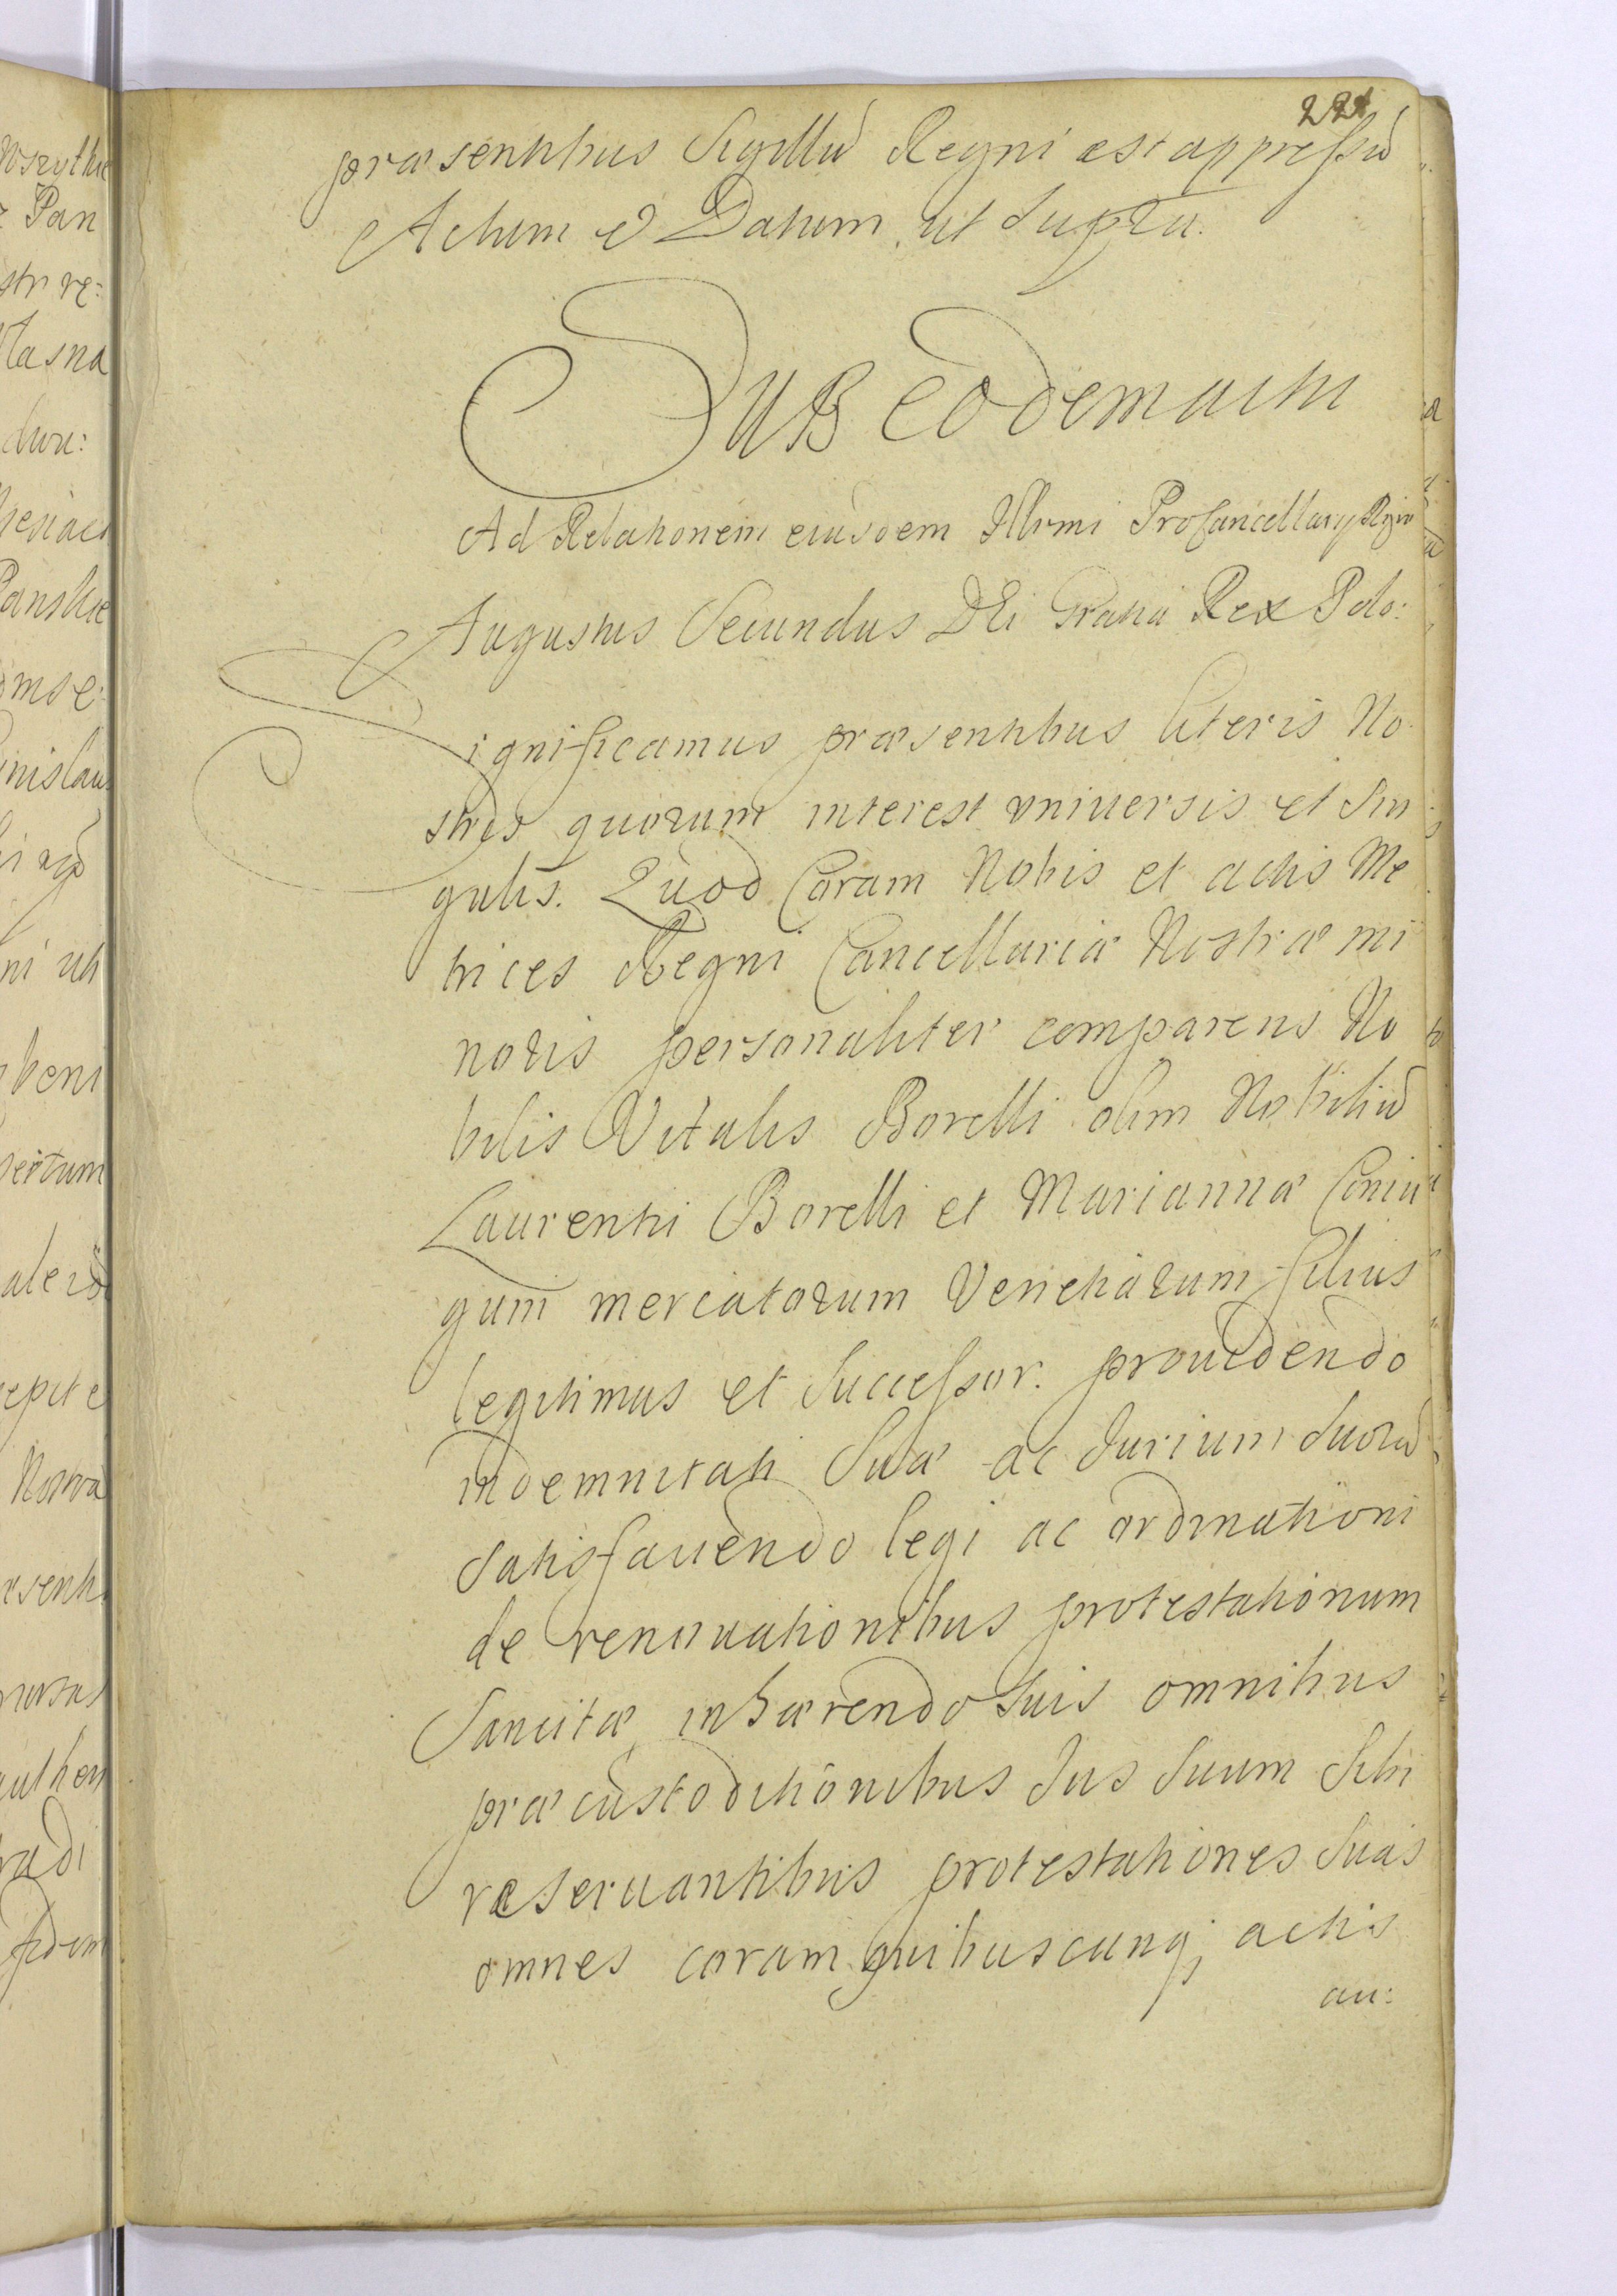 præsentibus Sigillũ Regni est appressũ
Actum & Datum ut supra.
SUB Eodem actu
Ad Relationem eiusdem Illrmi ProCancellarij Regni
Augustus Secundus DEi Gratia Rex Polo:
Significamus præsentibus literis No
stris quorum interest vniuersis et sin
gulis. Quod Coram Nobis et actis Me
trices Regni Cancellariæ Nostræ mi
noris personaliter comparens No
bilis Vitalis Borelli olim Nobiliũ
Laurentii Borelli et Mariannæ Coniu
gum mercatorum Venetiarum filius
legitimus et Successor. prouidendo
indemnitati Suæ ac Jurium suorũ
satisfaciendo legi ac ordinationi
de renouationibus protestationum
Sancitæ inhærendo suis omnibus
præcustoditionibus Jus suum Sibi
reseruantibus protestationes suas
omnes coram quibuscunq; actis
au: